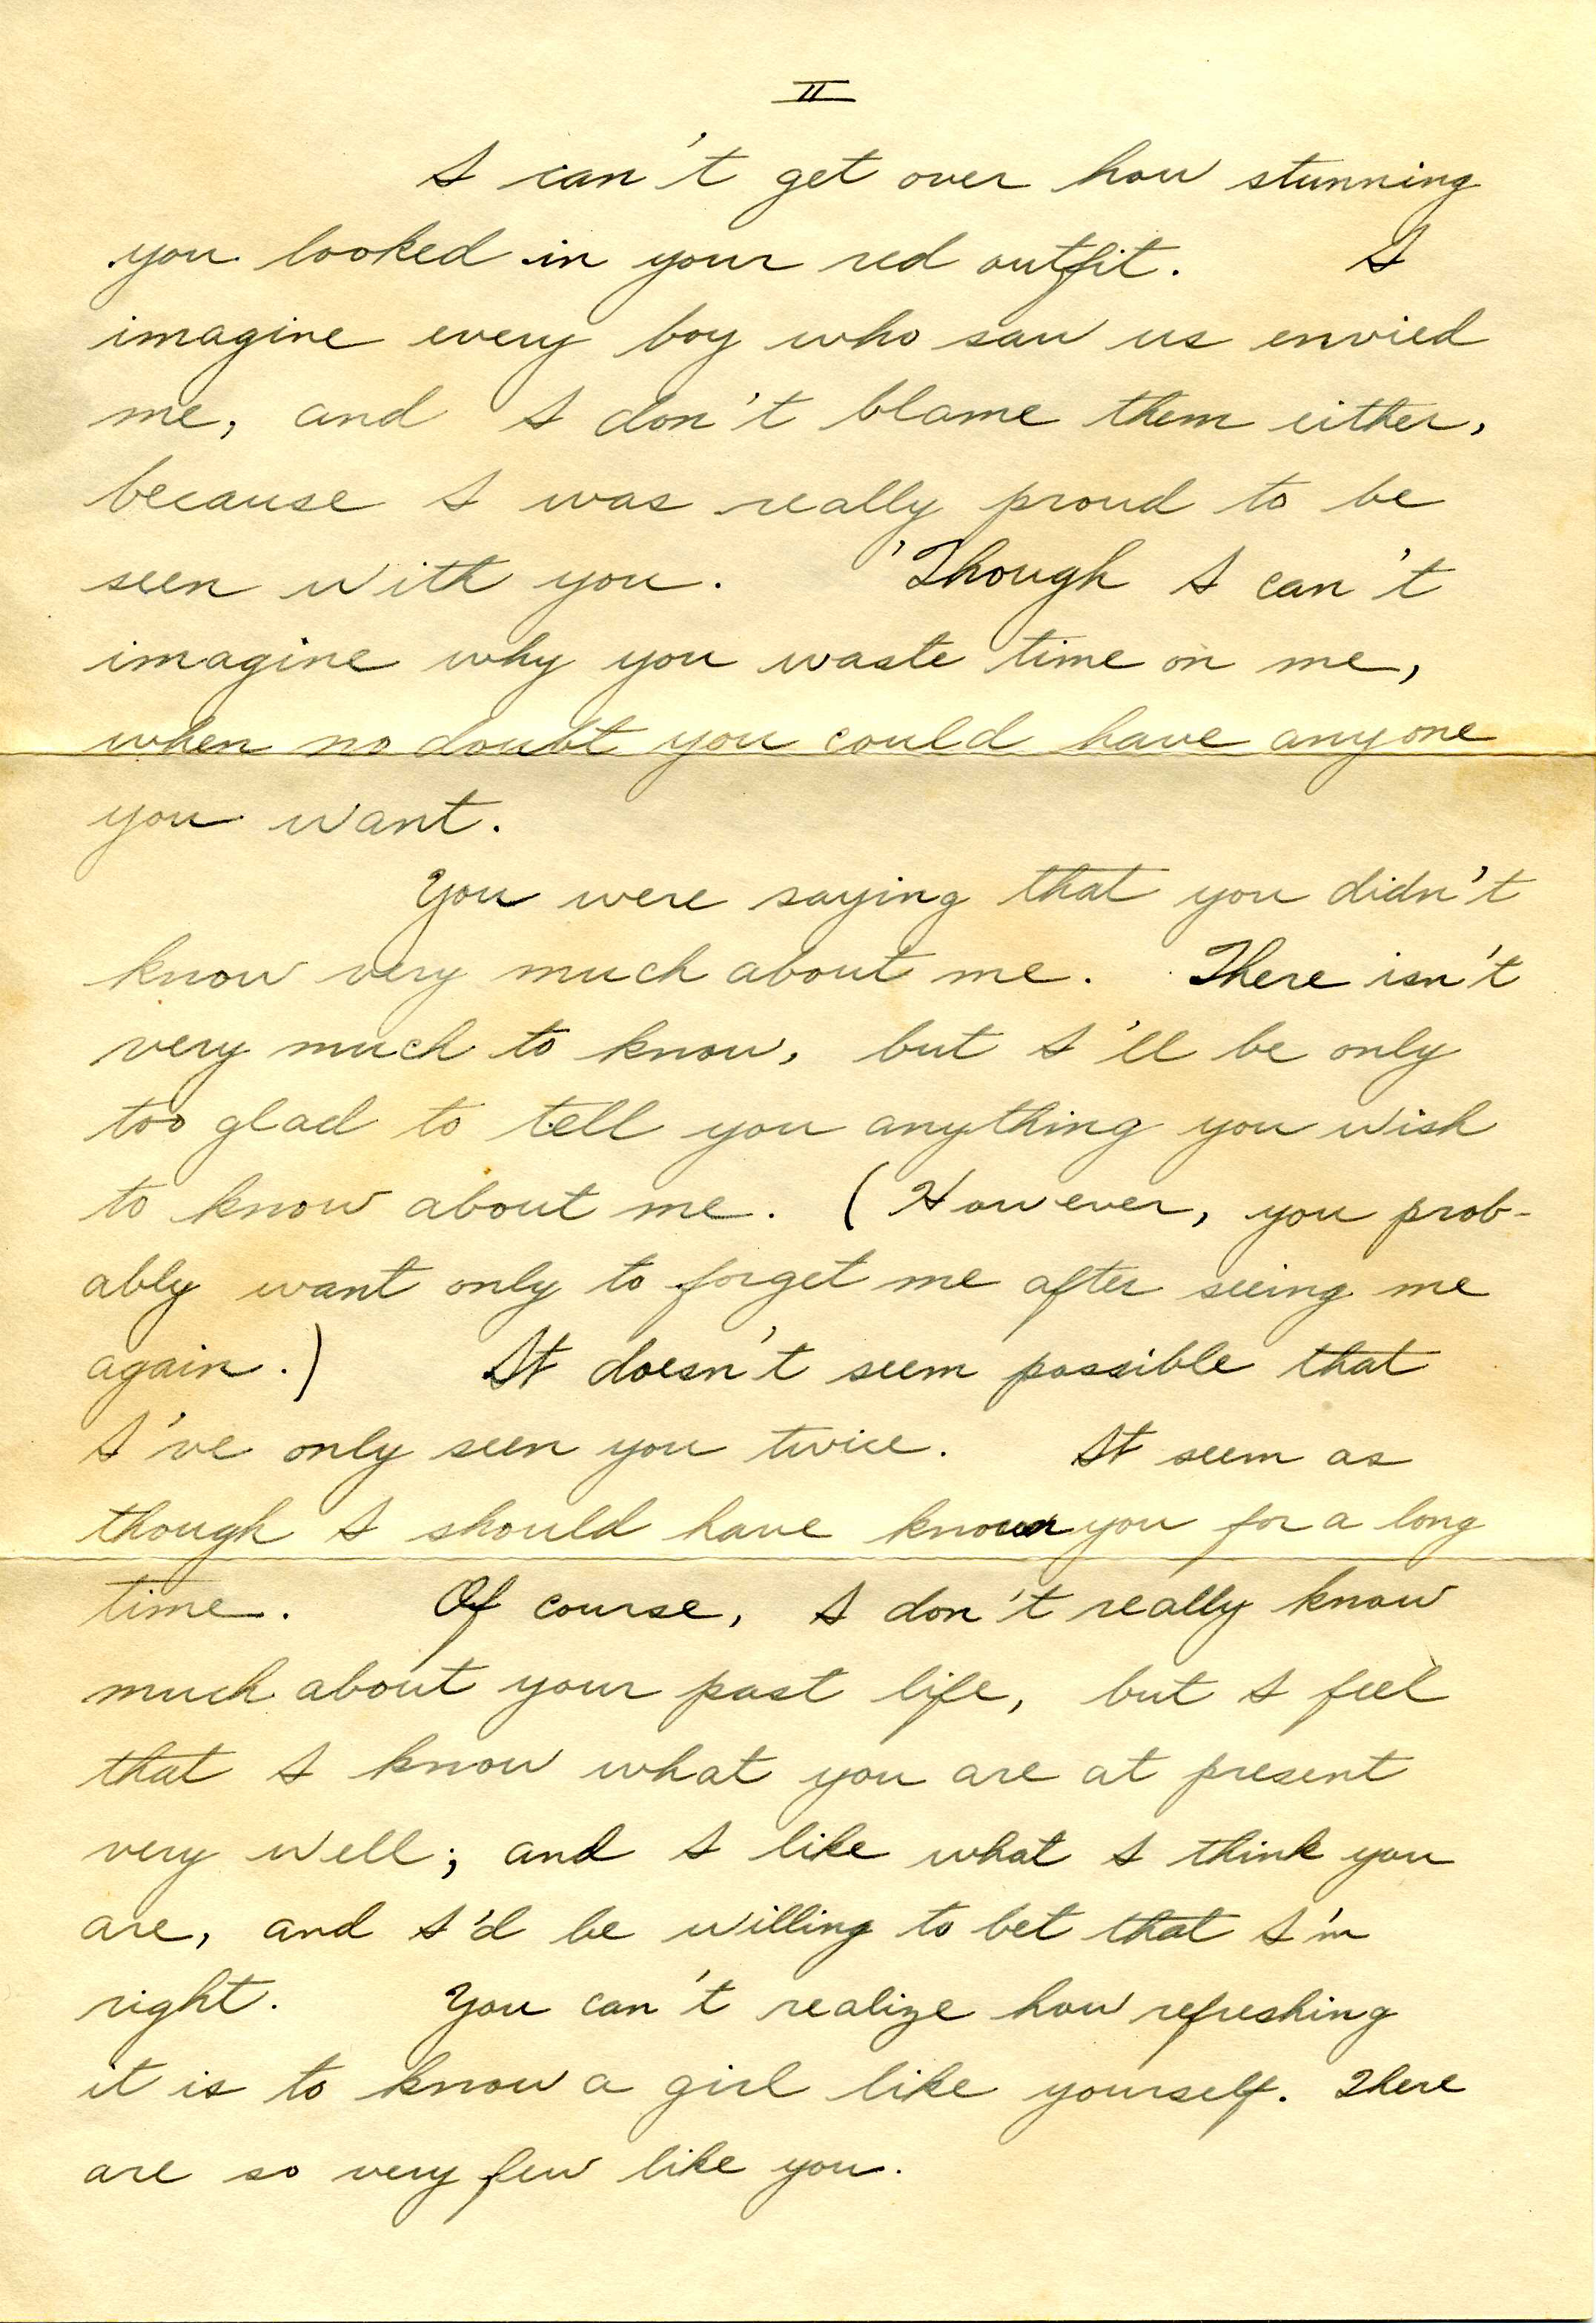 II
I can't get over how stunning
you looked in your red outfit. I
imagine every boy who saw us envied
me, and I don't blame them either,
because I was really proud to be
seen with you. 'Though I can't
imagine why you waste time on me,
when no doubt you could have anyone
you want.
You were saying that you didn't
know very much about me. There isn't
very much to know, but I'll be only
too glad to tell you anything you wish
to know about me. (However, you prob-
ably want only to forget me after seeing me
again.) It doesn't seem possible that
I've only seen you twice. It seem as
though I should have known you for a long
time. Of course, I don't really know
much about your past life, but I feel
that I know what you are at present
very well; and I like what I think you
are, and I'd be willing to bet that I'm
right. You can't realize how refreshing
it is to know a girl like yourself. There
are so very few like you.